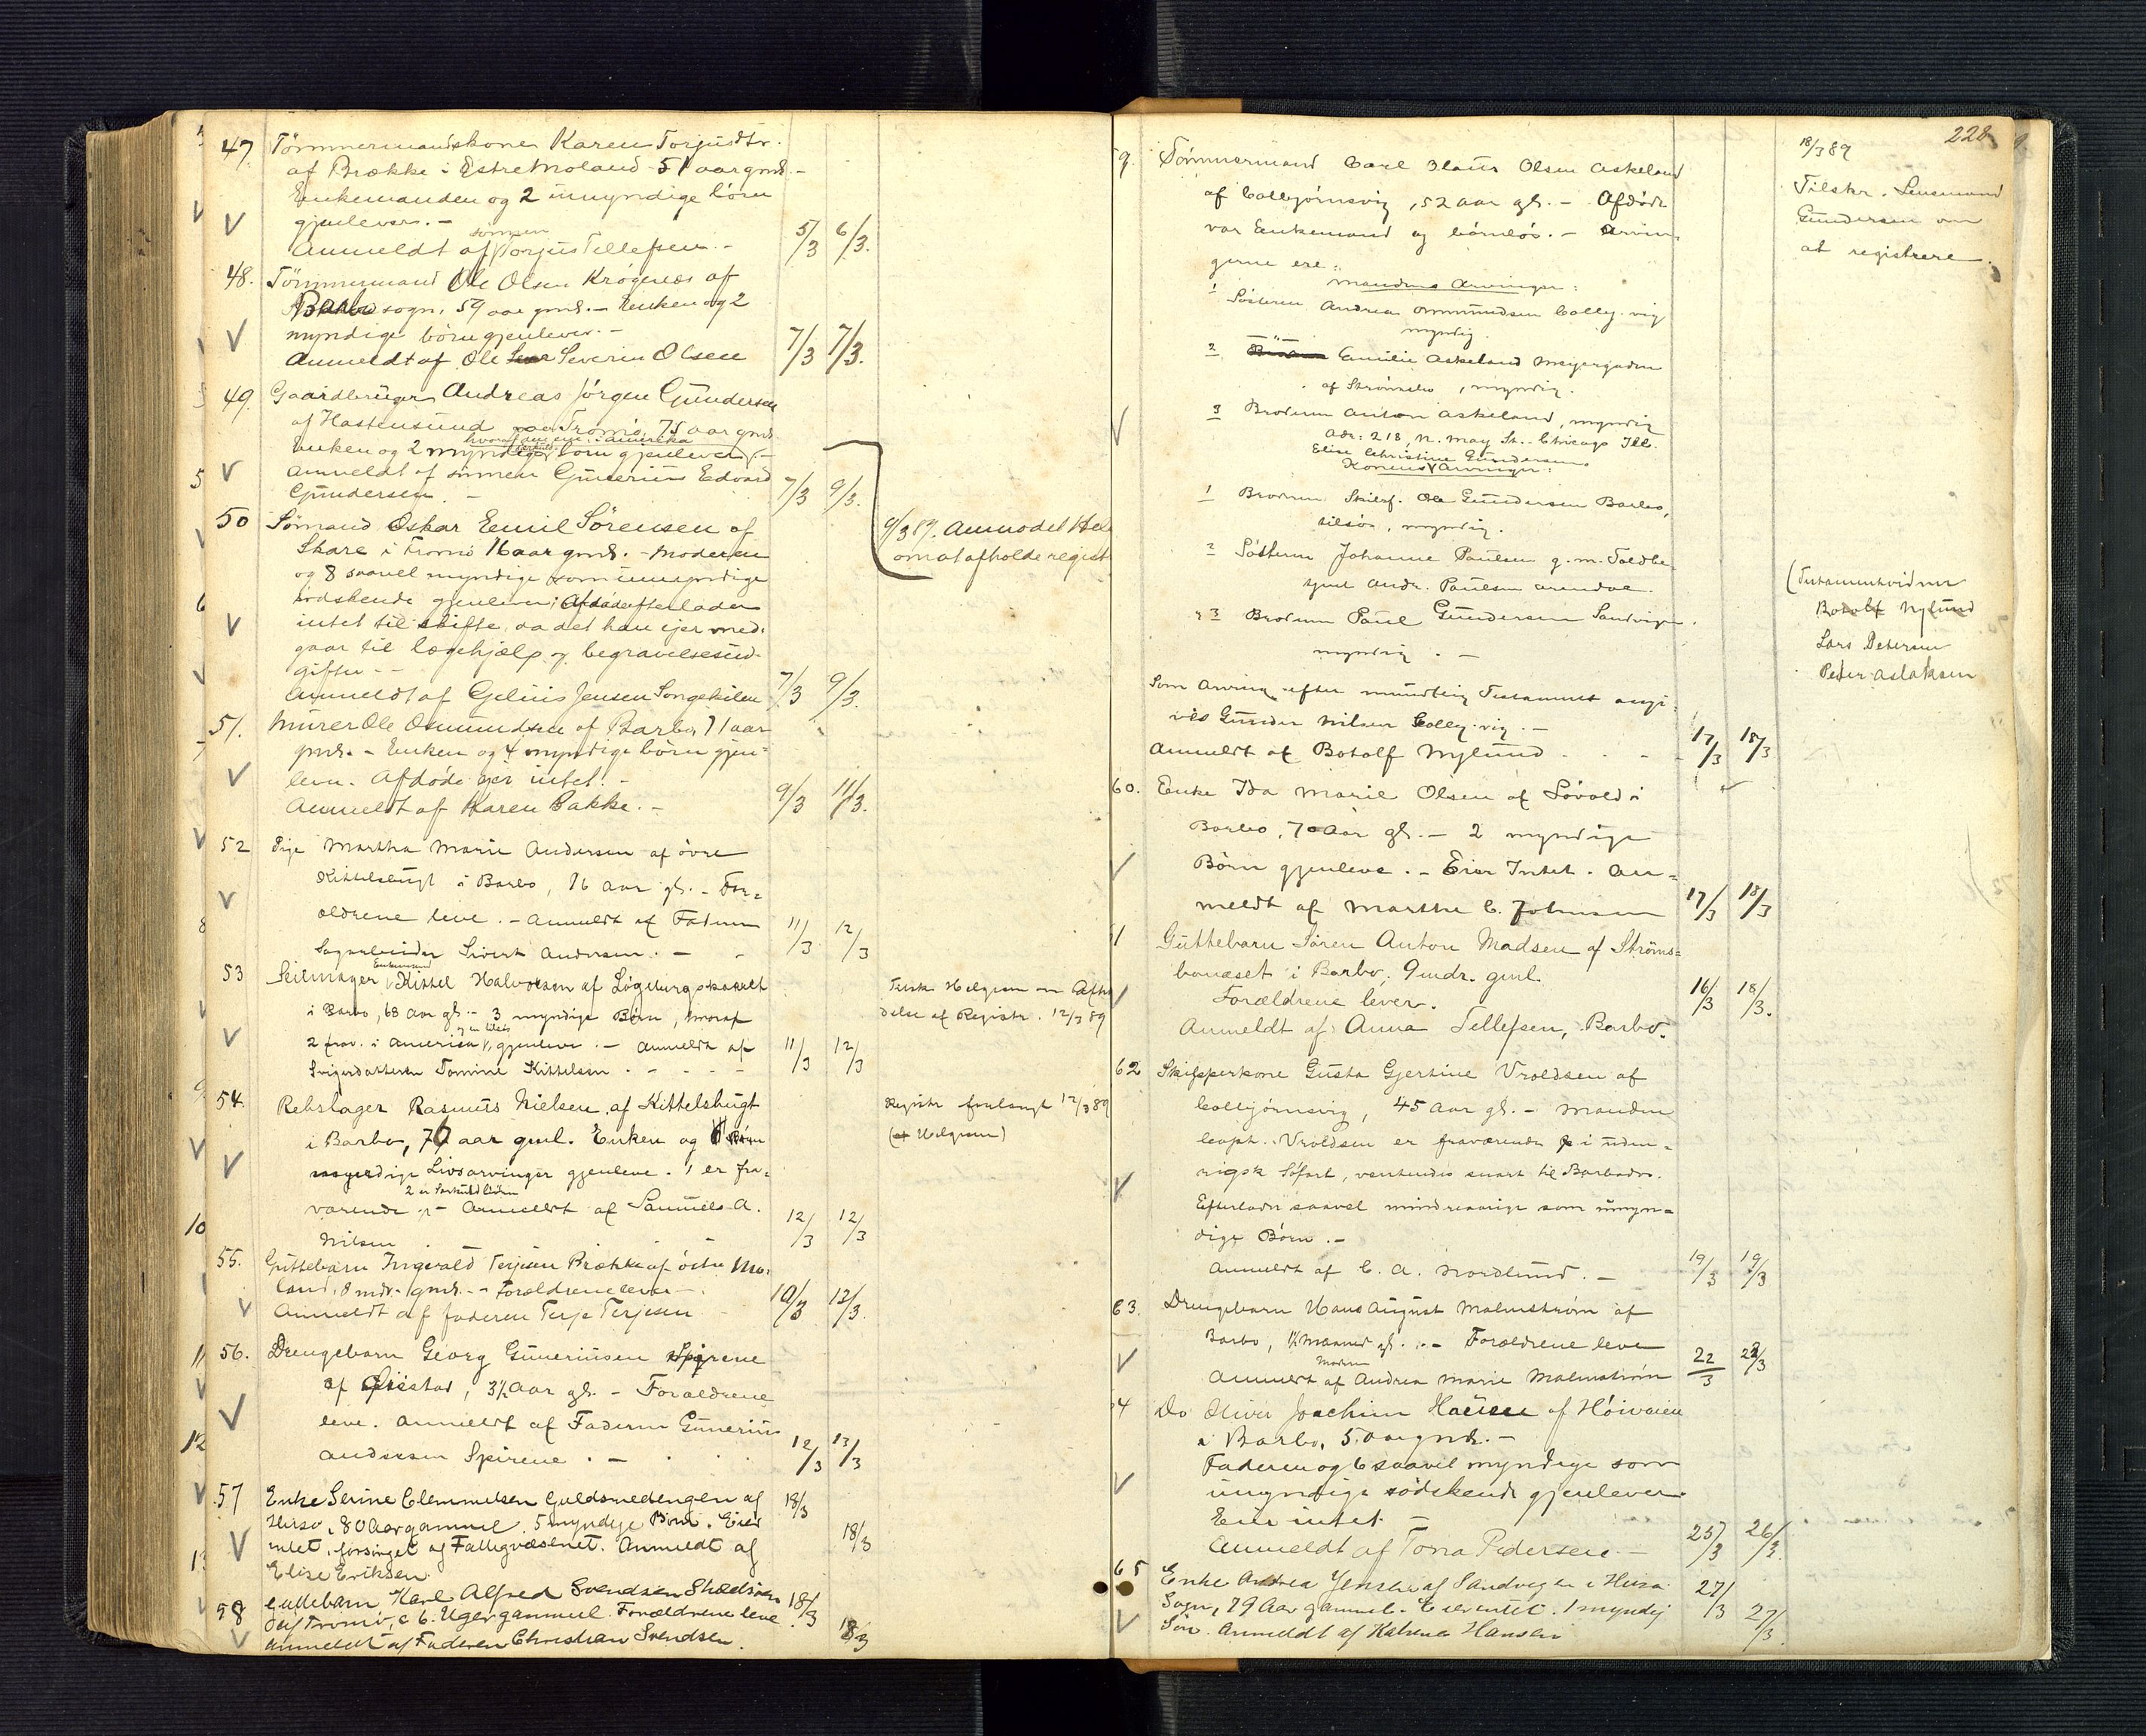 47. Tömmermandskone Karen Torjusdtr.
af Brække i Østre Moland 51 aar gml. -
Enkemanden og 2 umyndige börn
gjenlever. -
sönnen
Anmeldt af Torjus Tellefsen. - 5/3 6/3.
48. Tömmermand Ole Olsen Krögenes af
Barbo sogn, 59 aar gml. - Enken og 2
myndige börn gjenlever. -
Anmeldt af Ole Severin Olsen 7/3 7/3.
49. Gaardbruger Andreas Jörgen Gundersen
af Hastensund paa Tromö, 75 aar gml.
hvoraf den ene i Amerika
Enken og 2 myndige börn gjenlever. -
Anmeldt af sönnen Gunerius Edvard
Gundersen. - 7/3 9/3.
50 Sömand Oskar Emil Sörensen af
Skare i Tromö 16 aar gml. - Moderen
og 8 saavel myndige som umyndige
södskende gjenlever; Afdöde efterlader
intet til skifte, da det han ejer med-
gaar til lægehjælp og begravelsesud-
gifter - -
Anmeldt af Gelius Jensen Songekilen 7/3 9/3.
9/3 89. Anmodet Hel
om at afholde regist
51. Murer Ole Osmundsen af Barbo 71 aar
gml. - Enken og 4 myndige börn gjen-
lever. Afdöde ejer intet. -
Anmeldt af Karen Bakke. - 9/3 11/3.
52 Pige Martha Marie Andersen af övre
Kittelsbugt i Barbo, 16 Aar gl. - For-
ældrene leve. - Anmeldt af Faderen
Sivert Andersen. - 11/3 12/3
53 Enkemand
Seilmager Kittel Halvorsen af Lögeburgskaret
i Barbo, 68 Aar gl. - 3 myndige Börn, hvoraf
2 frav. i Amerika, gjenleve. - Anmeldt af
Svigerdatteren Tomine Kittelsen. - - - 11/3 12/3
Tilsk Helgesen om Afhol
delse af Registr. 12/3 89
54. Rebslager Rasmus Nielsen af Kittelsbugt
i Barbo, 76 aar gml. Enken og Börn
myndige Livsarvinger gjenleve. 1 er fra-
2 er Særkuldbörn
værende. - Anmeldt af Samuel A.
Nilsen 12/3 12/3
Registr forlangt 12/3 89
(af Helgesen)
55. Guttebarn Ingevald Terjesen Brække af östre Mo-
land, 8 mdr. gml. - Forældrene leve -
Anmeldt af faderen Terje Terjesen 10/3 12/3.
56. Drengebarn Georg Guneriusen Spirene
af, 3½ Aar gl. - Forældrene
leve. Anmeldt af Faderen Gunerius
Andersen Spirene. - 12/3 13/3
57 Enke Serine Clemmetsen Guldsmedengen af
Hisö, 80 Aar gammel. 5 myndige Börn. Eier
intet, forsörget af Fattigvæsenet. Anmeldt af
Elise Eriksen. 18/3 18/3
58 Guttebarn Karl Alfred Svendsen
paa Tromö, c 6 Uger gammel. Forældrene leve
Anmeldt af Faderen Christian Svendsen. 18/3 18/3
228
9. Tömmermand Carl Olaus Olsen Askeland
af Colbjörnsvig, 52 aar gl. - Afdöde
var Enkemand og barnlös. - Arvin-
gerne ere:
Mandens Arvinger:
1 Sösteren Andrea Ommundsen Colbj.vig
myndig
2 Emilie Askeland Meyergaden
af Strömsbo, myndig.
3 Broderen Anton Askeland, myndig
Adr: 218, N. May St. Chicago Ill.
Elise Christine Gundersens
Konens Arvinger:
1 Broderen Skibsf. Ole Gundersen Barbo,
tilsös, myndig.
2 Sösteren Johanne Paulsen g. m. Toldbe-
tjent Andr. Paulsen Arendal.
3 Broderen Paul Gundersen Sandvigen.
myndig. -
Som Arving efter mundtlig Testament angi-
ves Gunder Nilsen Colbj.vig. -
Anmeldt af Botolf Nylund - 17/3 18/3
18/3 89
Tilskr. Lensmand
Gundersen om
at registrere.
(Testamentvidner
Botolf Nylund
Lars Petersen
Peder Aslaksen
60. Enke Ida Marie Olsen af Lövold i
Barbo, 70 Aar gl. - 2 myndige
Börn gjenleve. - Eier Intet. An-
meldt af Marthe C. Johnsen 17/3 18/3
61 Guttebarn Sören Anton Madsen af Ströms-
bonæset i Barbo. 9 mdr. gml.
Forældrene lever.
Anmeldt af Anna Tellefsen, Barbo. 16/3 18/3.
62 Skipperkone Gusta Gjertine Vroldsen af
Colbjörnsvig, 45 Aar gl. - Manden
Vroldsen er fraværende i uden-
rigsk Söfart, ventendes snart til Barbados.
Efterlader saavel mindreaarige som umyn-
dige Börn. -
Anmeldt af C. A. Nordlund. - 19/3 19/3
63. Drengebarn Hans August Malmström af
Barbo, 1½ Maaned gl. - Forældrene leve
Moderen
Anmeldt af Andrea Marie Malmström 22/3 22/3
64 Do Oliver Joachim Hansen af Höivaien
i Barbo, 5 Aar gml. -
Faderen og 6 saavel myndige som
umyndige södskende gjenlever.
Eier intet -
Anmeldt af Tona Pedersen - 25/3 26/3.
65 Enke Andrea Jensen af Sandvigen i Hisö
Sogn, 79 Aar gammel. Eier intet. 1 myndig
Sön. Anmeldt af Katrine Hansen 27/3 27/3.